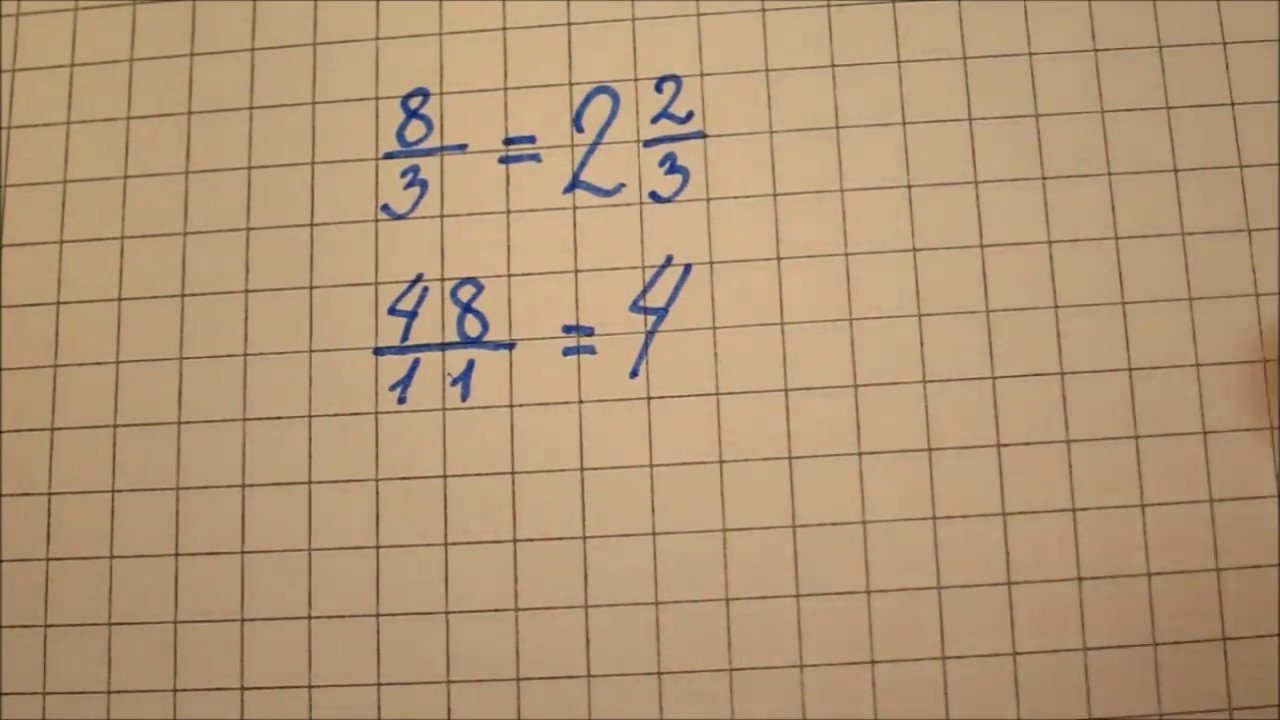 8/3 = 2 2/3
48/11 = 4